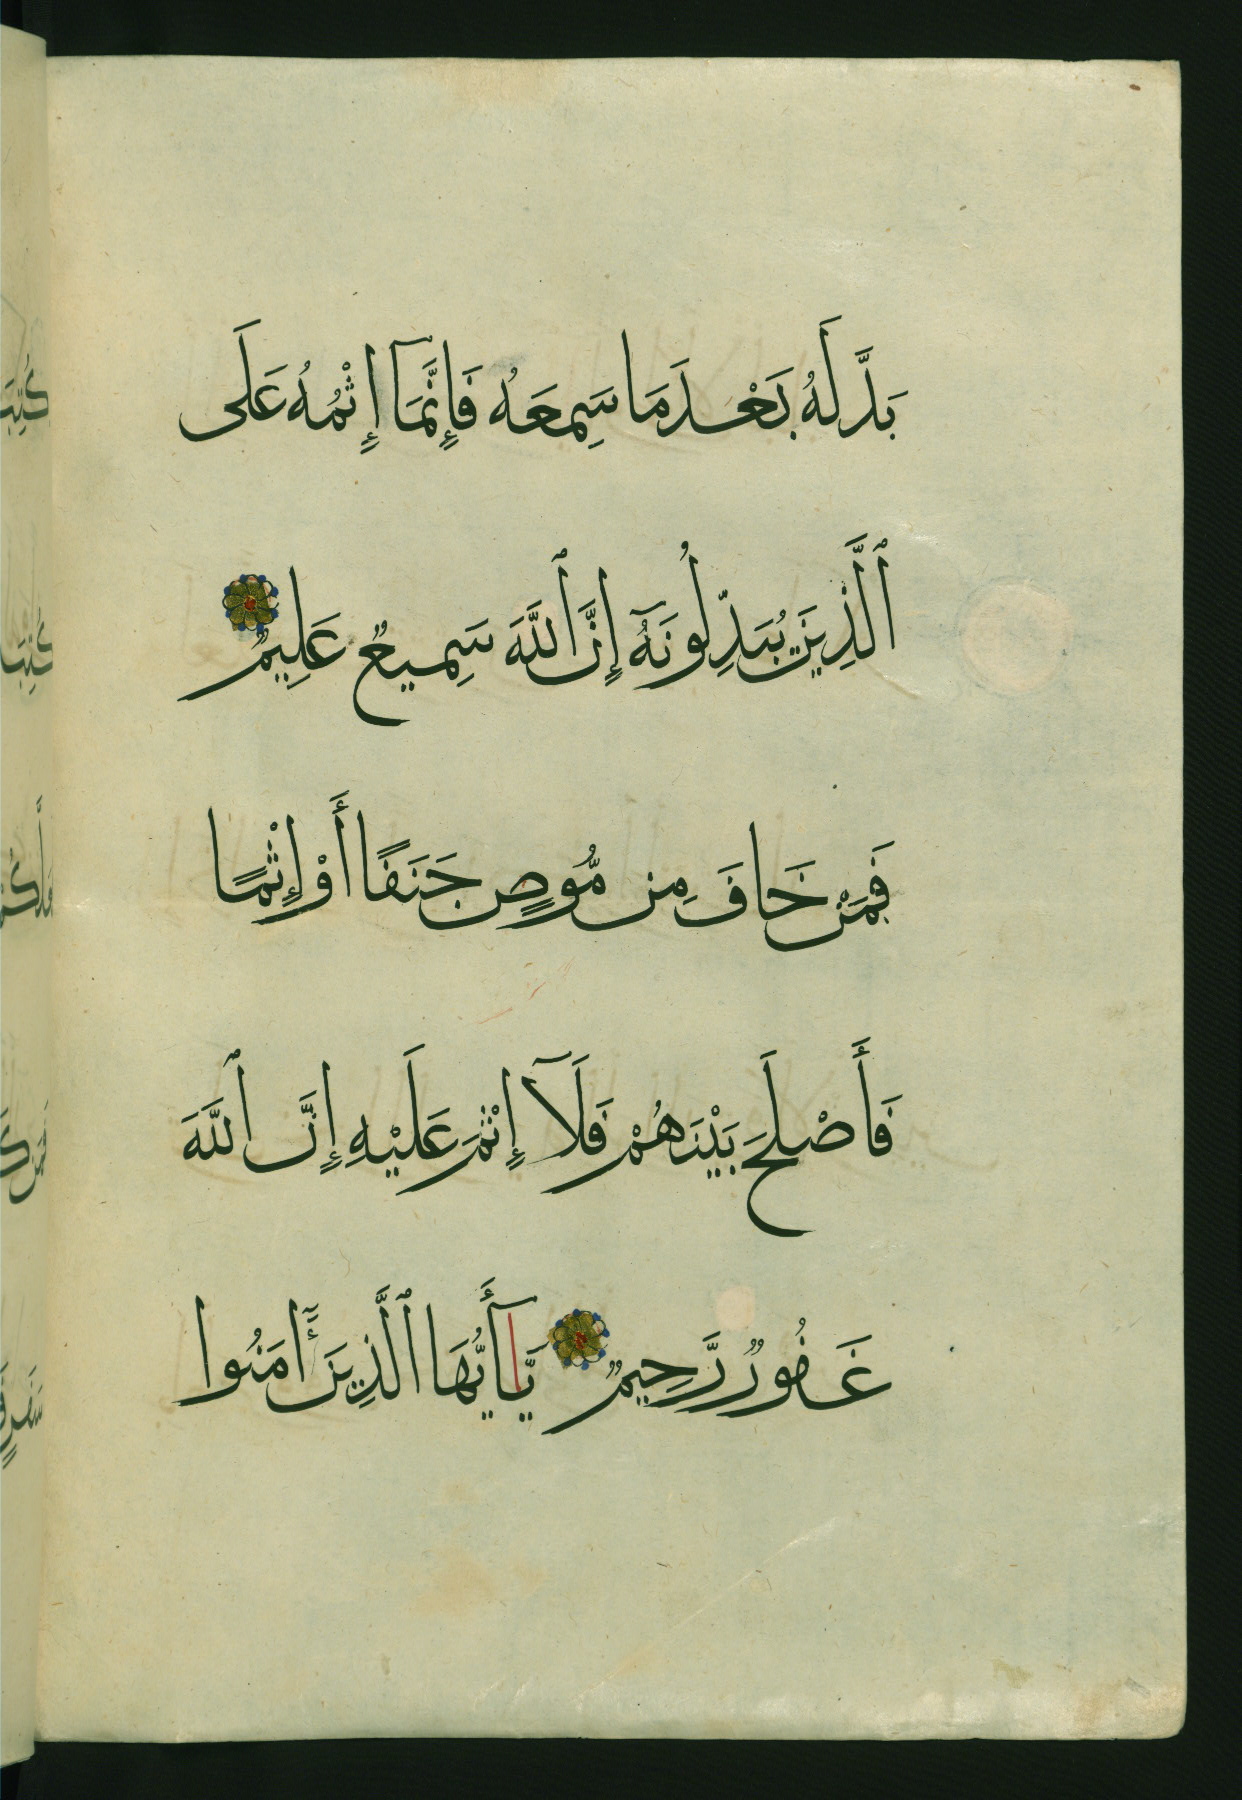 بَدَّلَهُ بَعْدَ مَا سَمِعَهُ فَإِنَّمَآ إِثْمُهُ عَلَى
ٱلَّذِينَ يُبَدِّلُونَهُٓ إِنَّ ٱللَّهَ سَمِيعٌ عَلِيمٌ
فَمَنْ خَافَ مِن مُّوصٍ جَنَفًا أَوْ إِثْمًا
فَأَصْلَحَ بَيْنَهُمْ فَلَآ إِثْمَ عَلَيْهِ إِنَّ ٱللَّهَ
غَفُورٌ رَّحِيمٌ يَٰٓأَيُّهَا ٱلَّذِينَ ءَامَنُوا